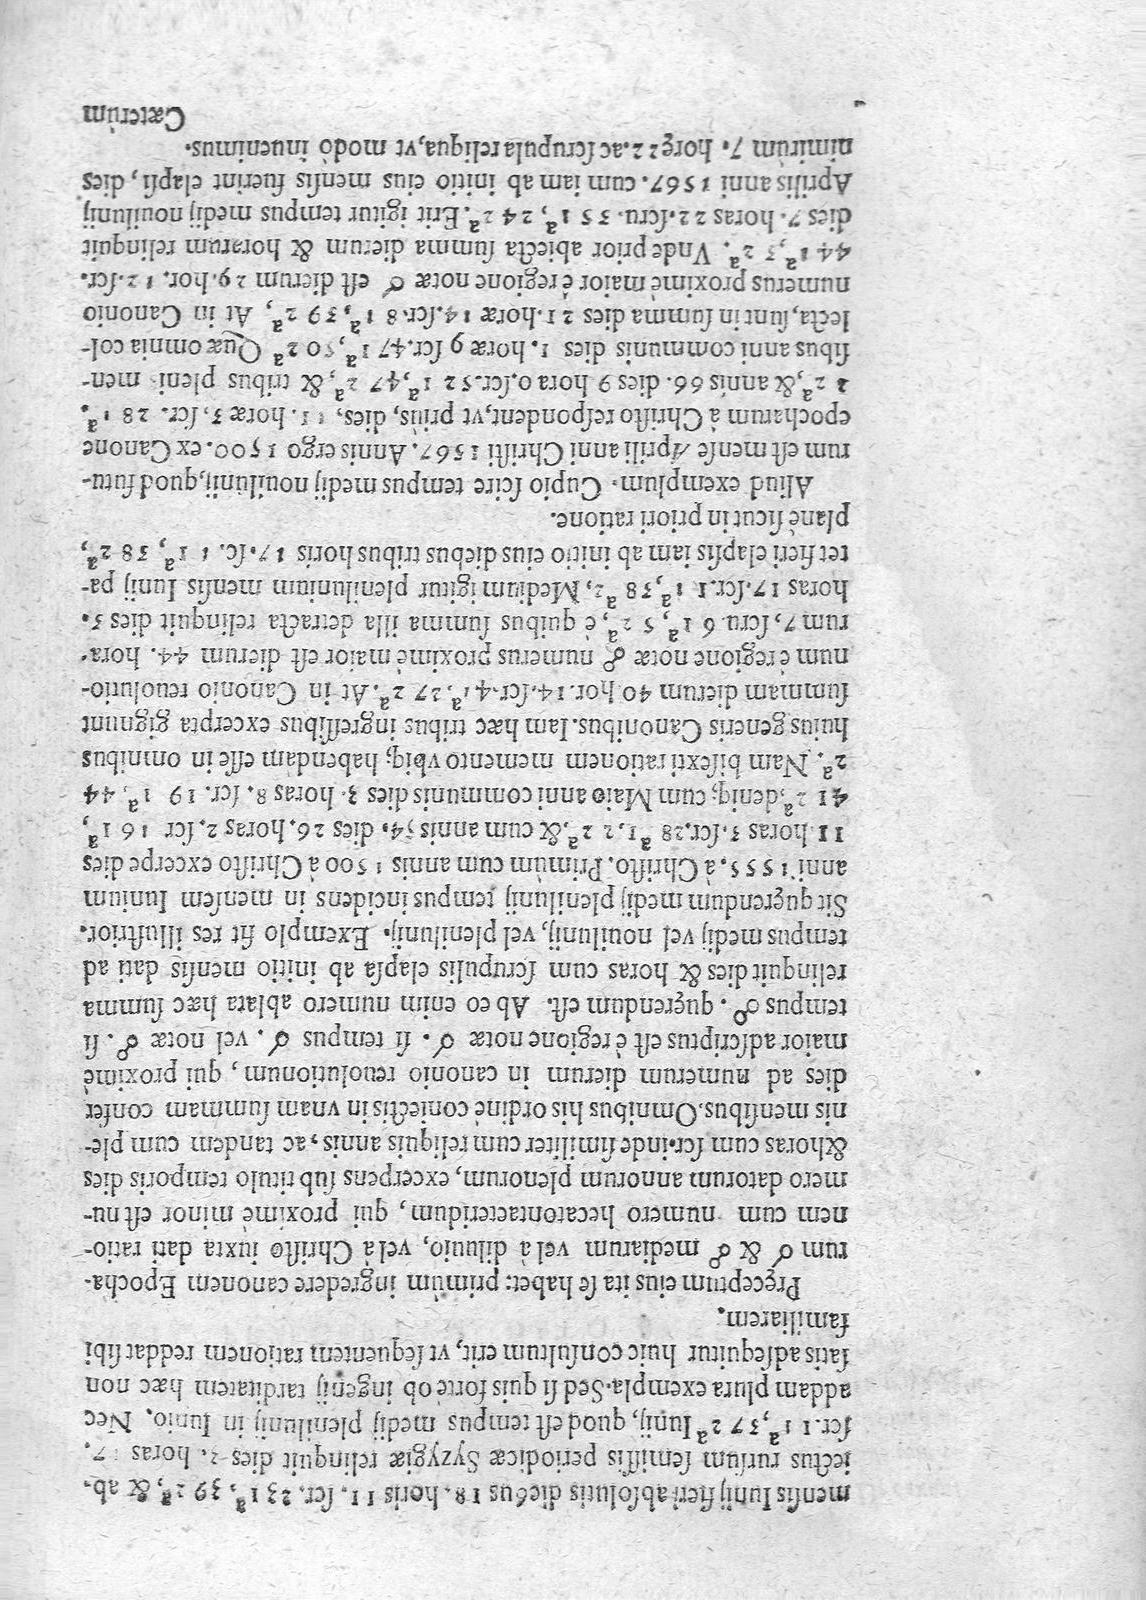 mensis Iunij fieri absolutis diebus 18. horis 11. scr. 23 1ª, 39 2ª, & ab-
iectus rursum semissis periodicæ Syzygiæ relinquit dies 3. horas 17.
scr. 11 1ª, 37 2ª Iunij, quod est tempus medij plenilunij in Iunio. Nec
addam plura exempla. Sed si quis forte ob ingenij tarditatem hæc non
satis adsequitur huic consultum erit, vt sequentem rationem reddat sibi
familiarem.
Pręceptum eius ita se habet: primùm ingredere canonem Epocha-
rum ☌ & ☍ mediarum vel à diluuio, vel à Christo iuxta dati ratio-
nem cum numero hecatontaeteridum, qui proximè minor est nu-
mero datorum annorum plenorum, excerpens sub titulo temporis dies
& horas cum scr. inde similiter cum reliquis annis, ac tandem cum ple-
nis mensibus. Omnibus his ordine coniectis in vnam summam confer
dies ad numerum dierum in canonio reuolutionum, qui proximè
maior adscriptus est è regione notæ ☌. si tempus ☌. vel notæ ☍. si
tempus ☍. quęrendum est. Ab eo enim numero ablata hæc summa
relinquit dies & horas cum scrupulis elapsa ab initio mensis dati ad
tempus medij vel nouilunij, vel plenilunij. Exemplo fit res illustrior.
Sit quęrendum medij plenilunij tempus incidens in mensem Iunium
anni 1555. à Christo. Primùm cum annis 1500 à Christo excerpe dies
11 horas 3. scr. 28 1ª, 2 2ª. & cum annis 54. dies 26. horas 2. scr 16 1ª,
41 2ª, deniq; cum Maio anni communis dies 3. horas 8. scr. 19 1ª, 44
2ª. Nam bisexti rationem memento vbiq; habendam esse in omnibus
huius generis Canonibus. Iam hæc tribus ingressibus excerpta gignunt
summam dierum 40 hor. 14. scr. 4 1ª, 27 2ª. At in Canonio reuolutio-
num è regione notæ ☍ numerus proximè maior est dierum 44. hora-
rum 7, scru. 6 1ª, 5 2ª, è quibus summa illa detracta relinquit dies 3.
horas 17. scr. 1 1ª, 38 2ª, Medium igitur plenilunium mensis Iunij pa-
tet fieri elapsis iam ab initio eius diebus tribus horis 17. sc. 1 1ª, 38 2ª,
planè sicut in priori ratione.
Aliud exemplum. Cupio scire tempus medij nouilunij, quod futu-
rum est mense Aprili anni Christi 1567. Annis ergo 1500. ex Canone
epocharum à Christo respondent, vt priùs, dies, 11. horæ 3, scr. 28 1ª.
2 2ª, & annis 66. dies 9 hora 0. scr. 52 1ª, 47 2ª, & tribus pleni men-
sibus anni communis dies 1. horæ 9 scr. 47 1ª, 50 2ª Quæ omnia col-
lecta, sunt in summa dies 21. horæ 14. scr. 8 1ª, 39 2ª, At in Canonio
numerus proximè maior è regione notæ ☌ est dierum 29. hor. 12. scr.
44 1ª, 3 2ª. Vnde prior abiecta summa dierum & horarum relinquit
dies 7. horas 22. scru. 35 1ª, 24 2ª. Erit igitur tempus medij nouilunij
Aprilis anni 1567. cum iam ab initio eius mensis fuerint elapsi, dies
nimirùm 7. horę 22. ac scrupula reliqua, vt modò inuenimus.
Cæterùm